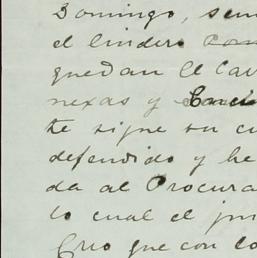 Domingo, sem
el lindero con
quedan el Car
nexas y
te signe su cu
defendido y he
da al Procura
lo cual el jui
Creo que con lo